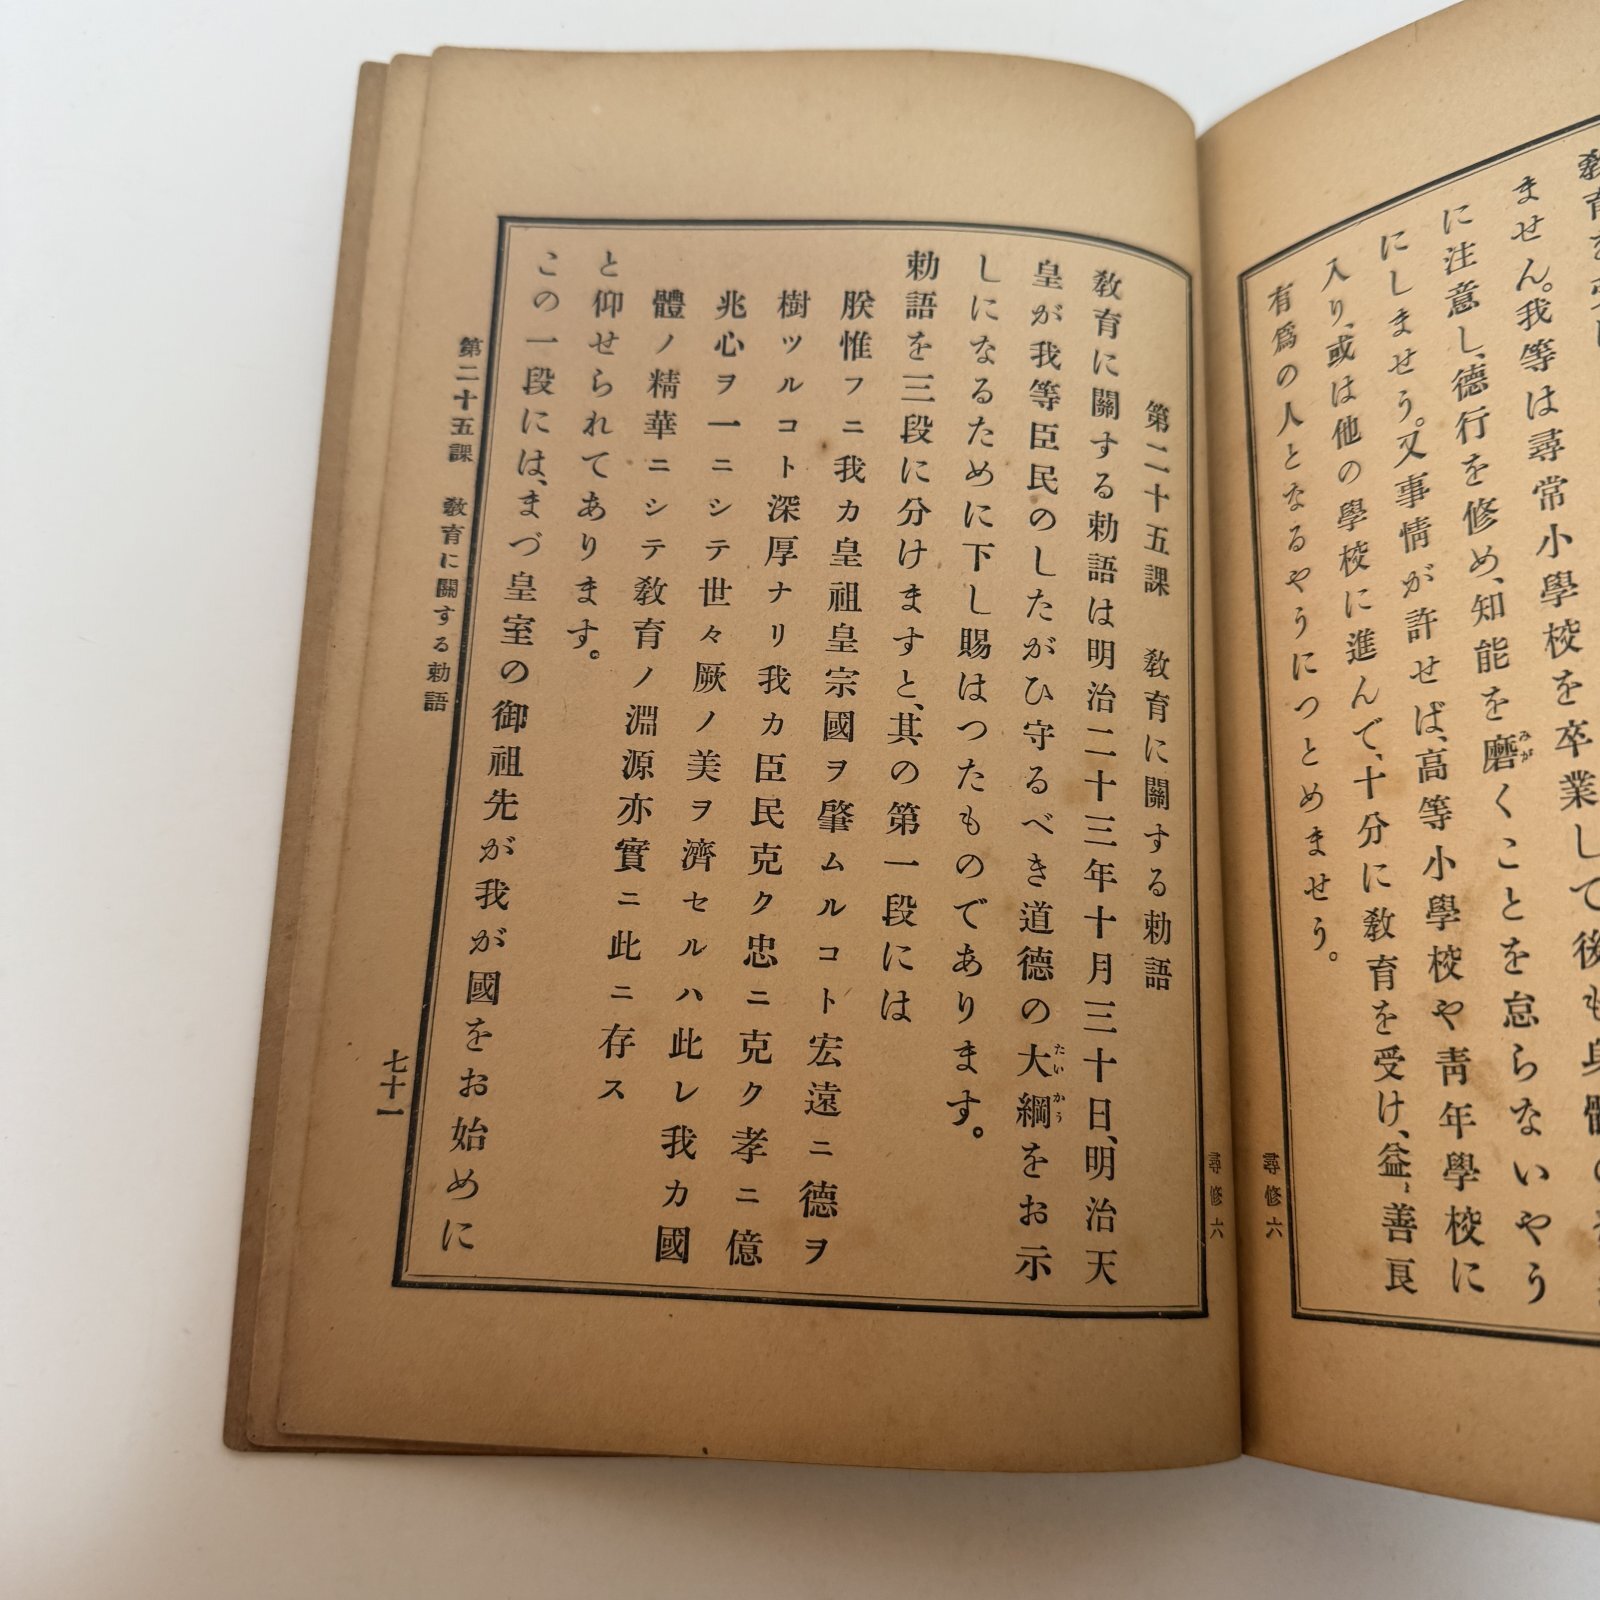 教育を
ません。我等は尋常小學校を卒業して後も身體の
に注意し、德行を修め、知能を磨くことを怠らないやう
にしませう。又事情が許せば、高等小學校や靑年學校に
入り、或は他の學校に進んで、十分に敎育を受け、益〻善良
有爲の人となるやうにつとめませう。
みが
尋修六
尋修六
第二十五課 敎育に關する勅語
敎育に關する勅語は明治二十三年十月三十日、明治天
皇が我等臣民のしたがひ守るべき道德の大綱をお示
たいかう
しになるために下し賜はつたものであります。
勅語を三段に分けますと、其の第一段には
朕惟フニ我カ皇祖皇宗國ヲ肇ムルコト宏遠ニ德ヲ
樹ツルコト深厚ナリ我カ臣民克ク忠ニ克ク孝ニ億
兆心ヲ一ニシテ世々厥ノ美ヲ濟セルハ此レ我カ國
體ノ精華ニシテ敎育ノ淵源亦實ニ此ニ存ス
と仰せられてあります。
この一段には、まづ皇室の御祖先が我が國をお始めに
第二十五課 敎育に關する勅語
七十一